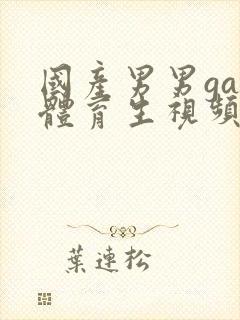 國產男男ga
體育生視頻
葉連松